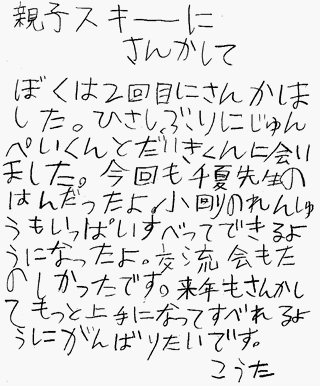 親子スキーに
さんかして
ぼくは2回目にさんかしま
した。ひさしぶりにじゅん
ぺいくんとだいきくんに会い
ました。今回も千夏先生の
はんだったよ。小剛のれんしゅ
うもいっぱいすべってできるよ
うになったよ。交流会もた
のしかったです。来年もさんかし
てもっと上手になってすべれるよ
うにがんばりたいです。
こうた